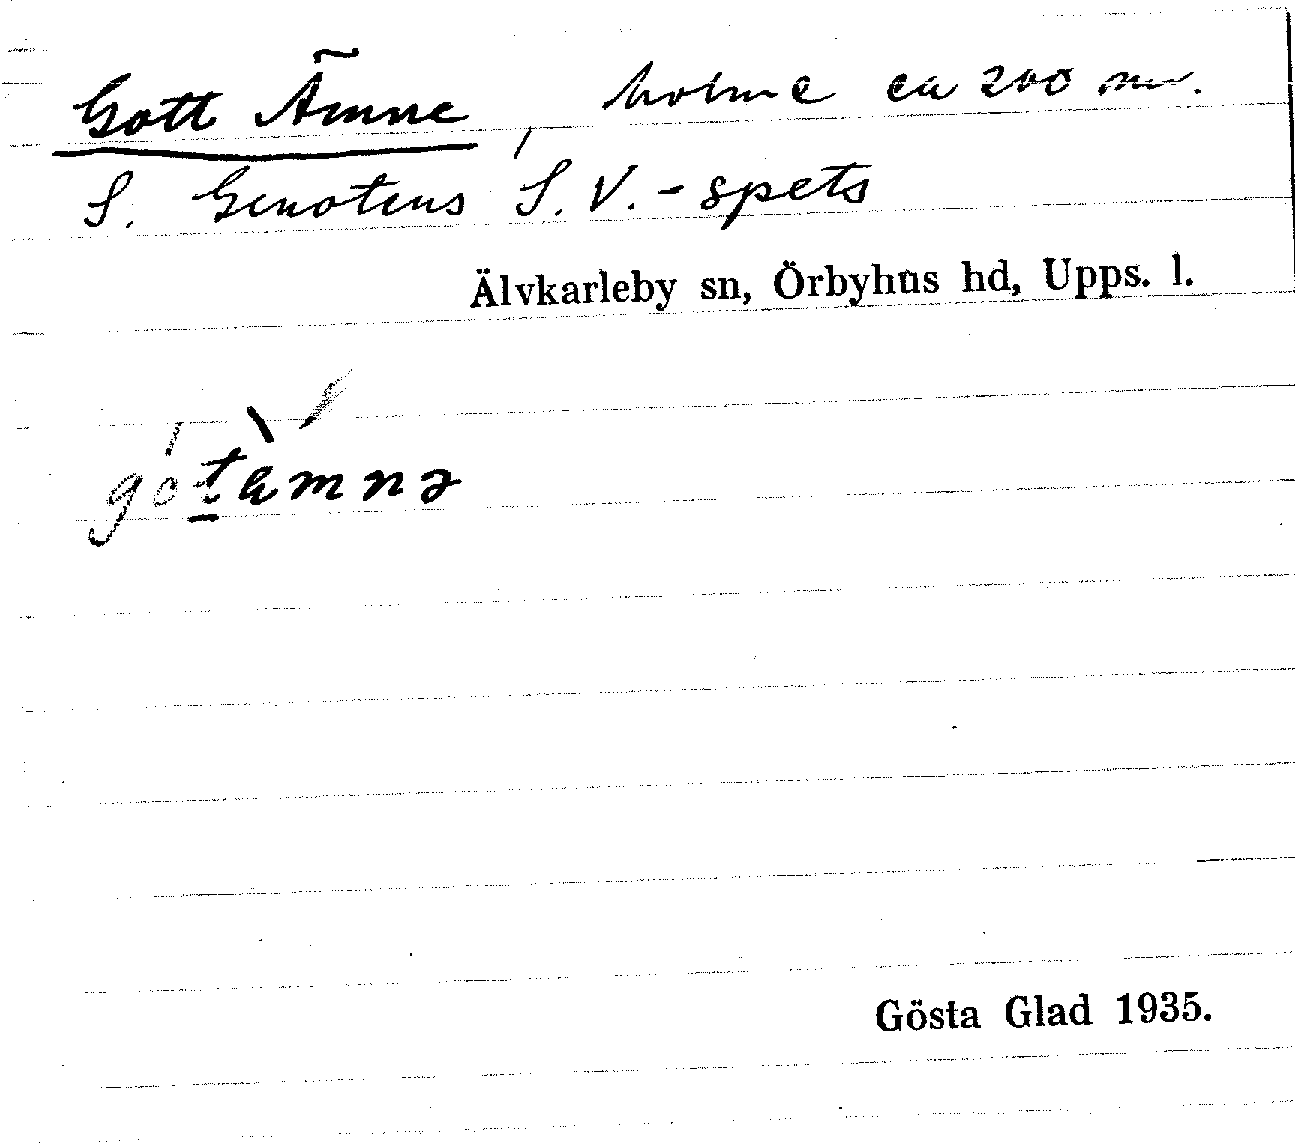 Gott Ämne, holme ca 200 m.
S. Genotens S.V.-spets
Älvkarleby sn, Örbyhus hd, Upps. l.
gótàmnə
Gösta Glad 1935.